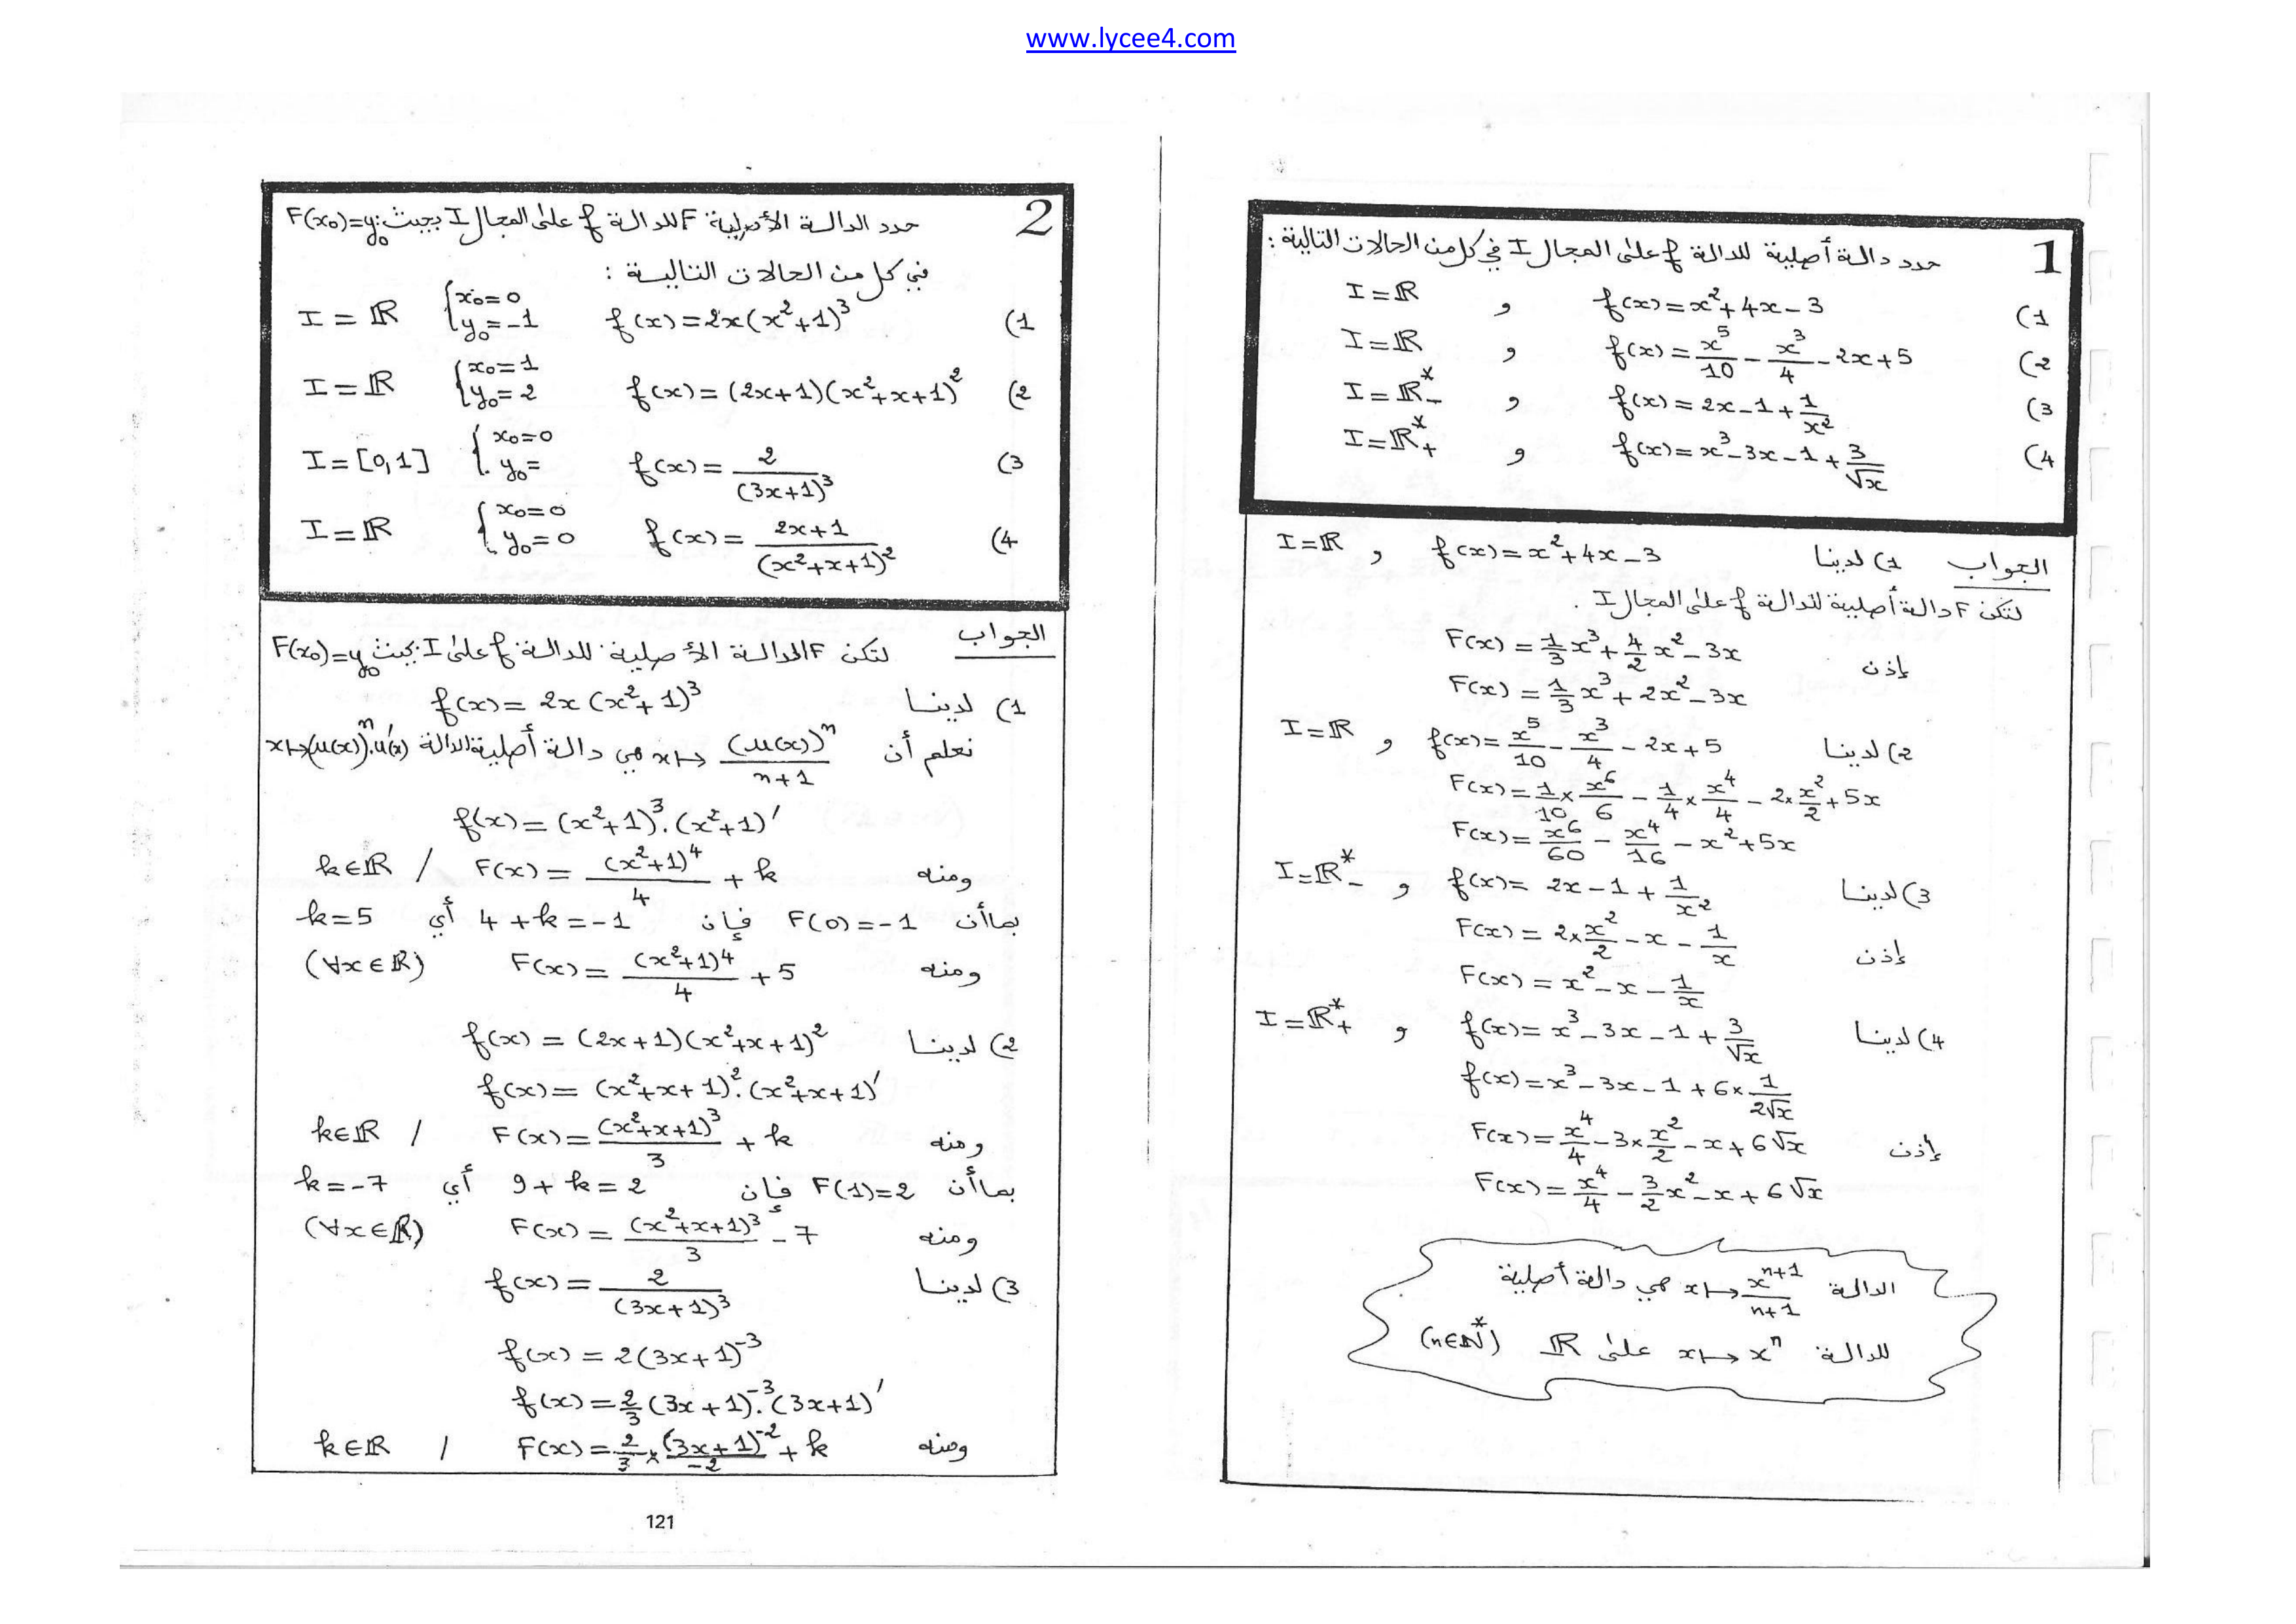 www.lycee4.com
1 حدد دالة أصلية للدالة f على المجال I في كل من الحالات التالية :
1) f(x)=x²+4x-3 و I=ℝ
2) f(x)=x⁵/10 - x³/4 - 2x+5 و I=ℝ
3) f(x)=2x-1+1/x² و I=ℝ*₋
4) f(x)=x³-3x-1+3/√x و I=ℝ*₊
الجواب 1) لدينا f(x)=x²+4x-3 و I=ℝ
لتكن F دالة أصلية للدالة f على المجال I .
إذن F(x)=1/3 x³+4/2 x²-3x
F(x)=1/3 x³+2x²-3x
2) لدينا f(x)=x⁵/10 - x³/4 - 2x+5 و I=ℝ
F(x)=1/10 × x⁶/6 - 1/4 × x⁴/4 - 2×x²/2 + 5x
F(x)=x⁶/60 - x⁴/16 - x²+5x
3) لدينا f(x)= 2x-1+1/x² و I=ℝ*₋
إذن F(x)=2×x²/2 - x - 1/x
F(x)=x²-x-1/x
4) لدينا f(x)=x³-3x-1+3/√x و I=ℝ*₊
f(x)=x³-3x-1+6×1/2√x
إذن F(x)=x⁴/4 - 3×x²/2 - x+6√x
F(x)=x⁴/4 - 3/2 x²-x+6√x
الدالة x↦xⁿ⁺¹/n+1 هي دالة أصلية
للدالة x↦xⁿ على ℝ (n∈ℕ*)
2 حدد الدالة الأصلية F للدالة f على المجال I بحيث: F(x₀)=y₀
في كل من الحالات التالية :
1) f(x)=2x(x²+1)³ {x₀=0 y₀=-1 I=ℝ
2) f(x)=(2x+1)(x²+x+1)² {x₀=1 y₀=2 I=ℝ
3) f(x)=2/(3x+1)³ {x₀=0 y₀= I=[0,1]
4) f(x)=2x+1/(x²+x+1)² {x₀=0 y₀=0 I=ℝ
الجواب لتكن F الدالة الأصلية للدالة f على I بحيث F(x₀)=y₀
1) لدينا f(x)=2x(x²+1)³
نعلم أن x↦(u(x))ⁿ/n+1 هي دالة أصلية للدالة x↦(u(x))ⁿ.u'(x)
f(x)=(x²+1)³.(x²+1)'
ومنه F(x)=(x²+1)⁴/4 + k / k∈ℝ
بما أن F(0)=-1 فإن 4+k=-1 أي k=5
ومنه F(x)=(x²+1)⁴/4 + 5 (∀x∈ℝ)
2) لدينا f(x)=(2x+1)(x²+x+1)²
f(x)=(x²+x+1)².(x²+x+1)'
ومنه F(x)=(x²+x+1)³/3 + k / k∈ℝ
بما أن F(1)=2 فإن 9+k=2 أي k=-7
ومنه F(x)=(x²+x+1)³/3 - 7 (∀x∈ℝ)
3) لدينا f(x)=2/(3x+1)³
f(x)=2(3x+1)⁻³
f(x)=2/3 (3x+1)⁻³.(3x+1)'
ومنه F(x)=2/3 × (3x+1)⁻²/-2 + k / k∈ℝ
121